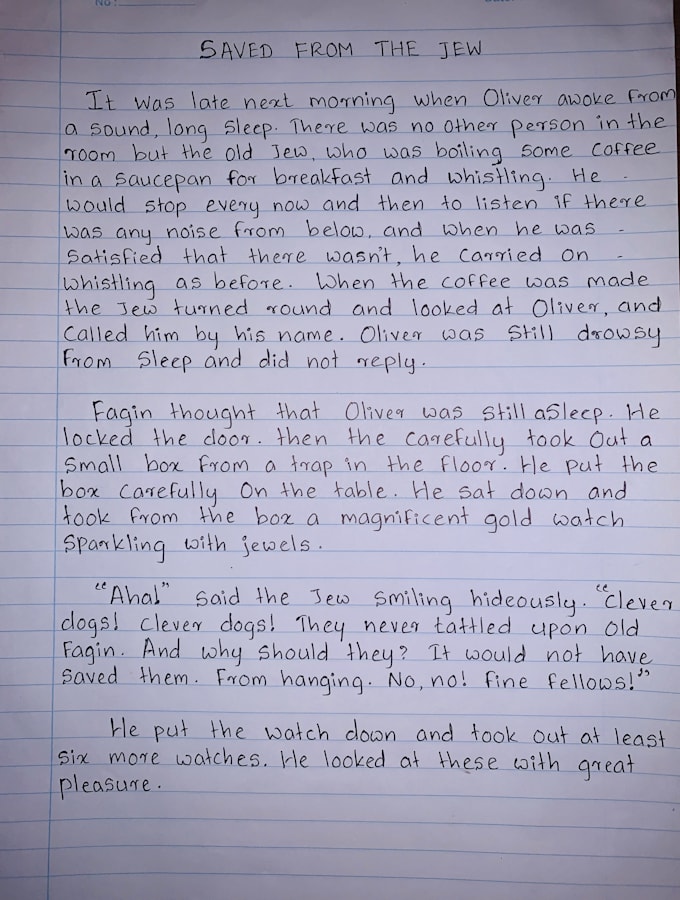 No:
SAVED FROM THE JEW
It was late next morning when Oliver awoke from
a sound, long sleep. There was no other person in the
room but the old Jew, who was boiling some coffee
in a saucepan for breakfast and whistling. He
would stop every now and then to listen if there
was any noise from below, and when he was
satisfied that there wasn't, he carried on
whistling as before. When the coffee was made
the Jew turned round and looked at Oliver, and
called him by his name. Oliver was still drowsy
from sleep and did not reply.
Fagin thought that Oliver was still asleep. He
locked the door. then the carefully took out a
small box from a trap in the floor. He put the
box carefully on the table. He sat down and
took from the box a magnificent gold watch
sparkling with jewels.
"Aha!" said the Jew smiling hideously. "Clever
dogs! clever dogs! They never tattled upon old
Fagin. And why should they? It would not have
saved them. From hanging. No, no! fine fellows!"
He put the watch down and took out at least
six more watches. He looked at these with great
pleasure.